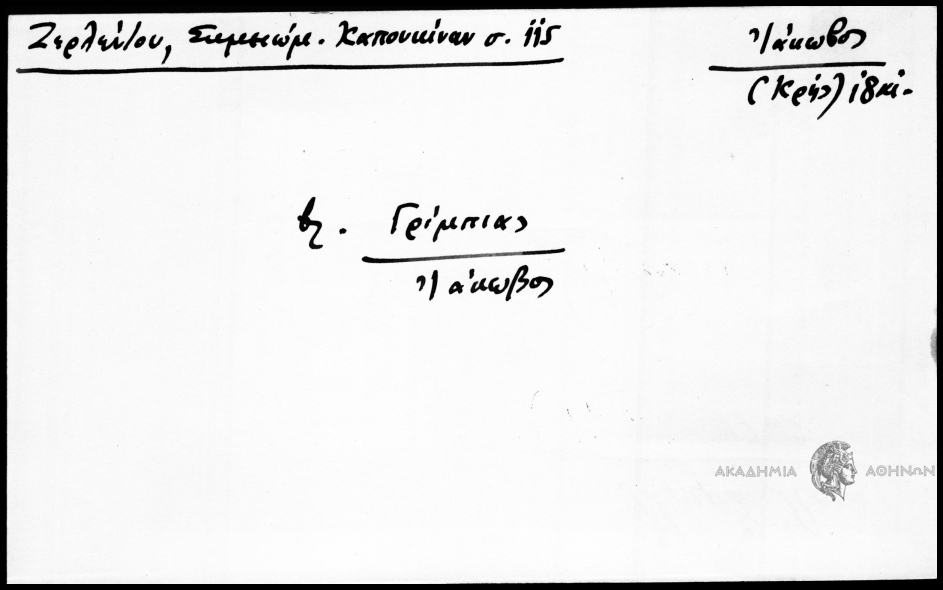 Ζερλέντου, Σημειώμ. Καπουκίναν σ. 115
Ἰάκωβος
(Κρής) 18 αἰ.
βλ. Γρίμπιας
Ἰάκωβος
ΑΚΑΔΗΜΙΑ ΑΘΗΝΩΝ